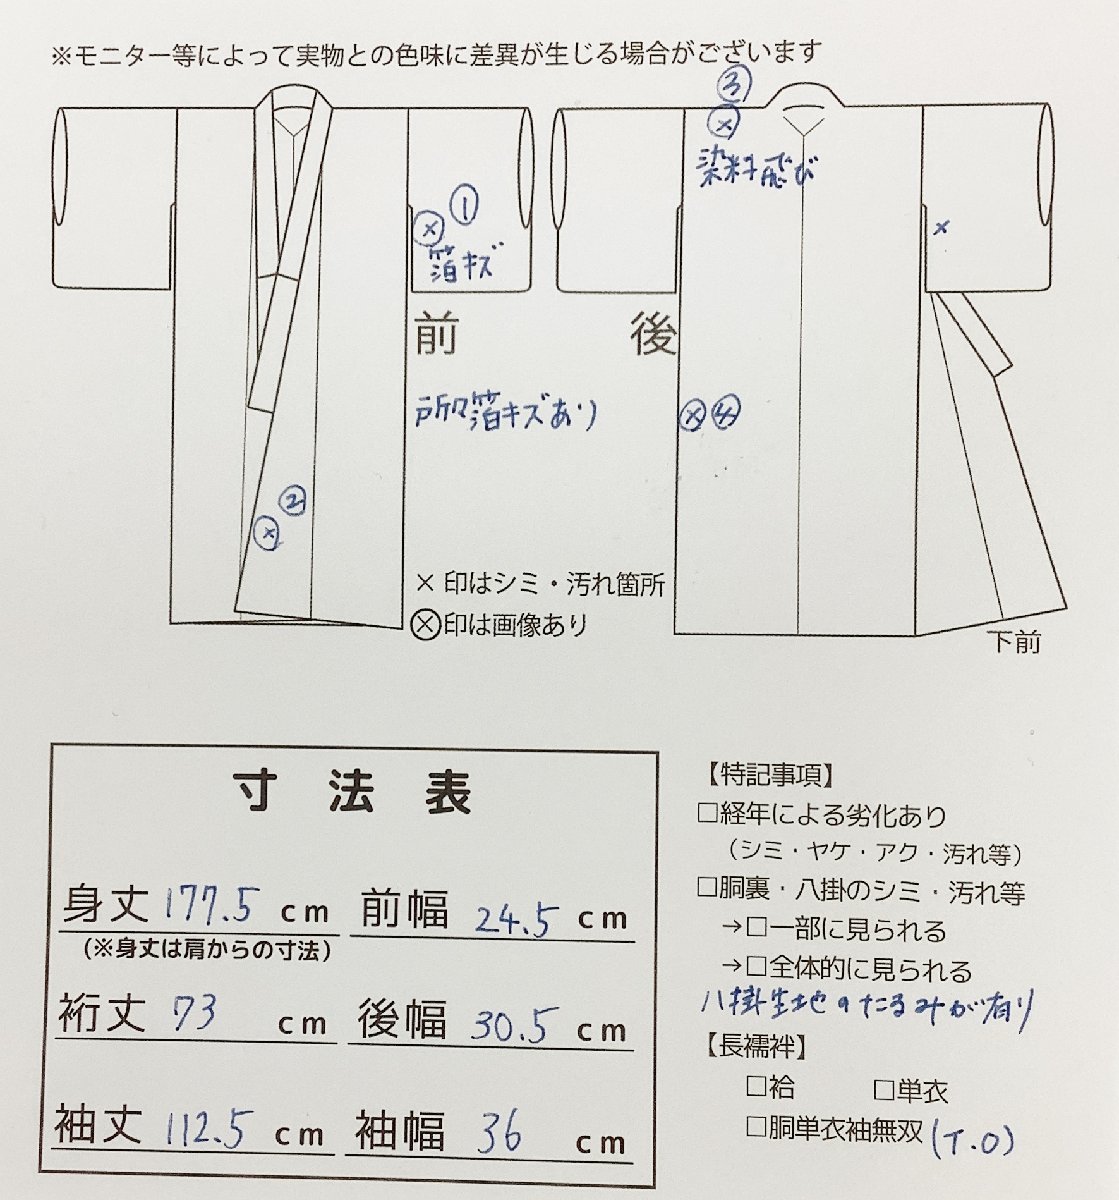 ※モニター等によって実物との色味に差異が生じる場合がございます
③
ⓧ
染料飛び
①
ⓧ
箔キズ
×
前
後
所々箔キズあり
ⓧ④
②
ⓧ
×印はシミ・汚れ箇所
ⓧ印は画像あり
下前
寸法表
身丈 177.5 cm
前幅 24.5 cm
(※身丈は肩からの寸法)
裄丈 73 cm
後幅 30.5 cm
袖丈 112.5 cm
袖幅 36 cm
【特記事項】
□経年による劣化あり
(シミ・ヤケ・アク・汚れ等)
□胴裏・八掛のシミ・汚れ等
→□一部に見られる
→□全体的に見られる
八掛生地のたるみが有り
【長襦袢】
□袷 □単衣
□胴単衣袖無双(T.O)